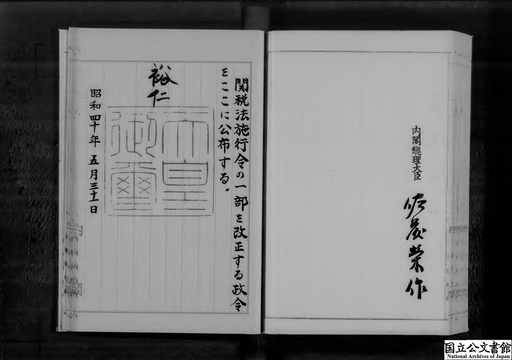 関税法施行令の一部を改正する政令
をここに公布する。
裕仁
天皇
御璽
昭和四十年五月三十一日
内閣総理大臣
佐藤榮作
国立公文書館
National Archives of Japan